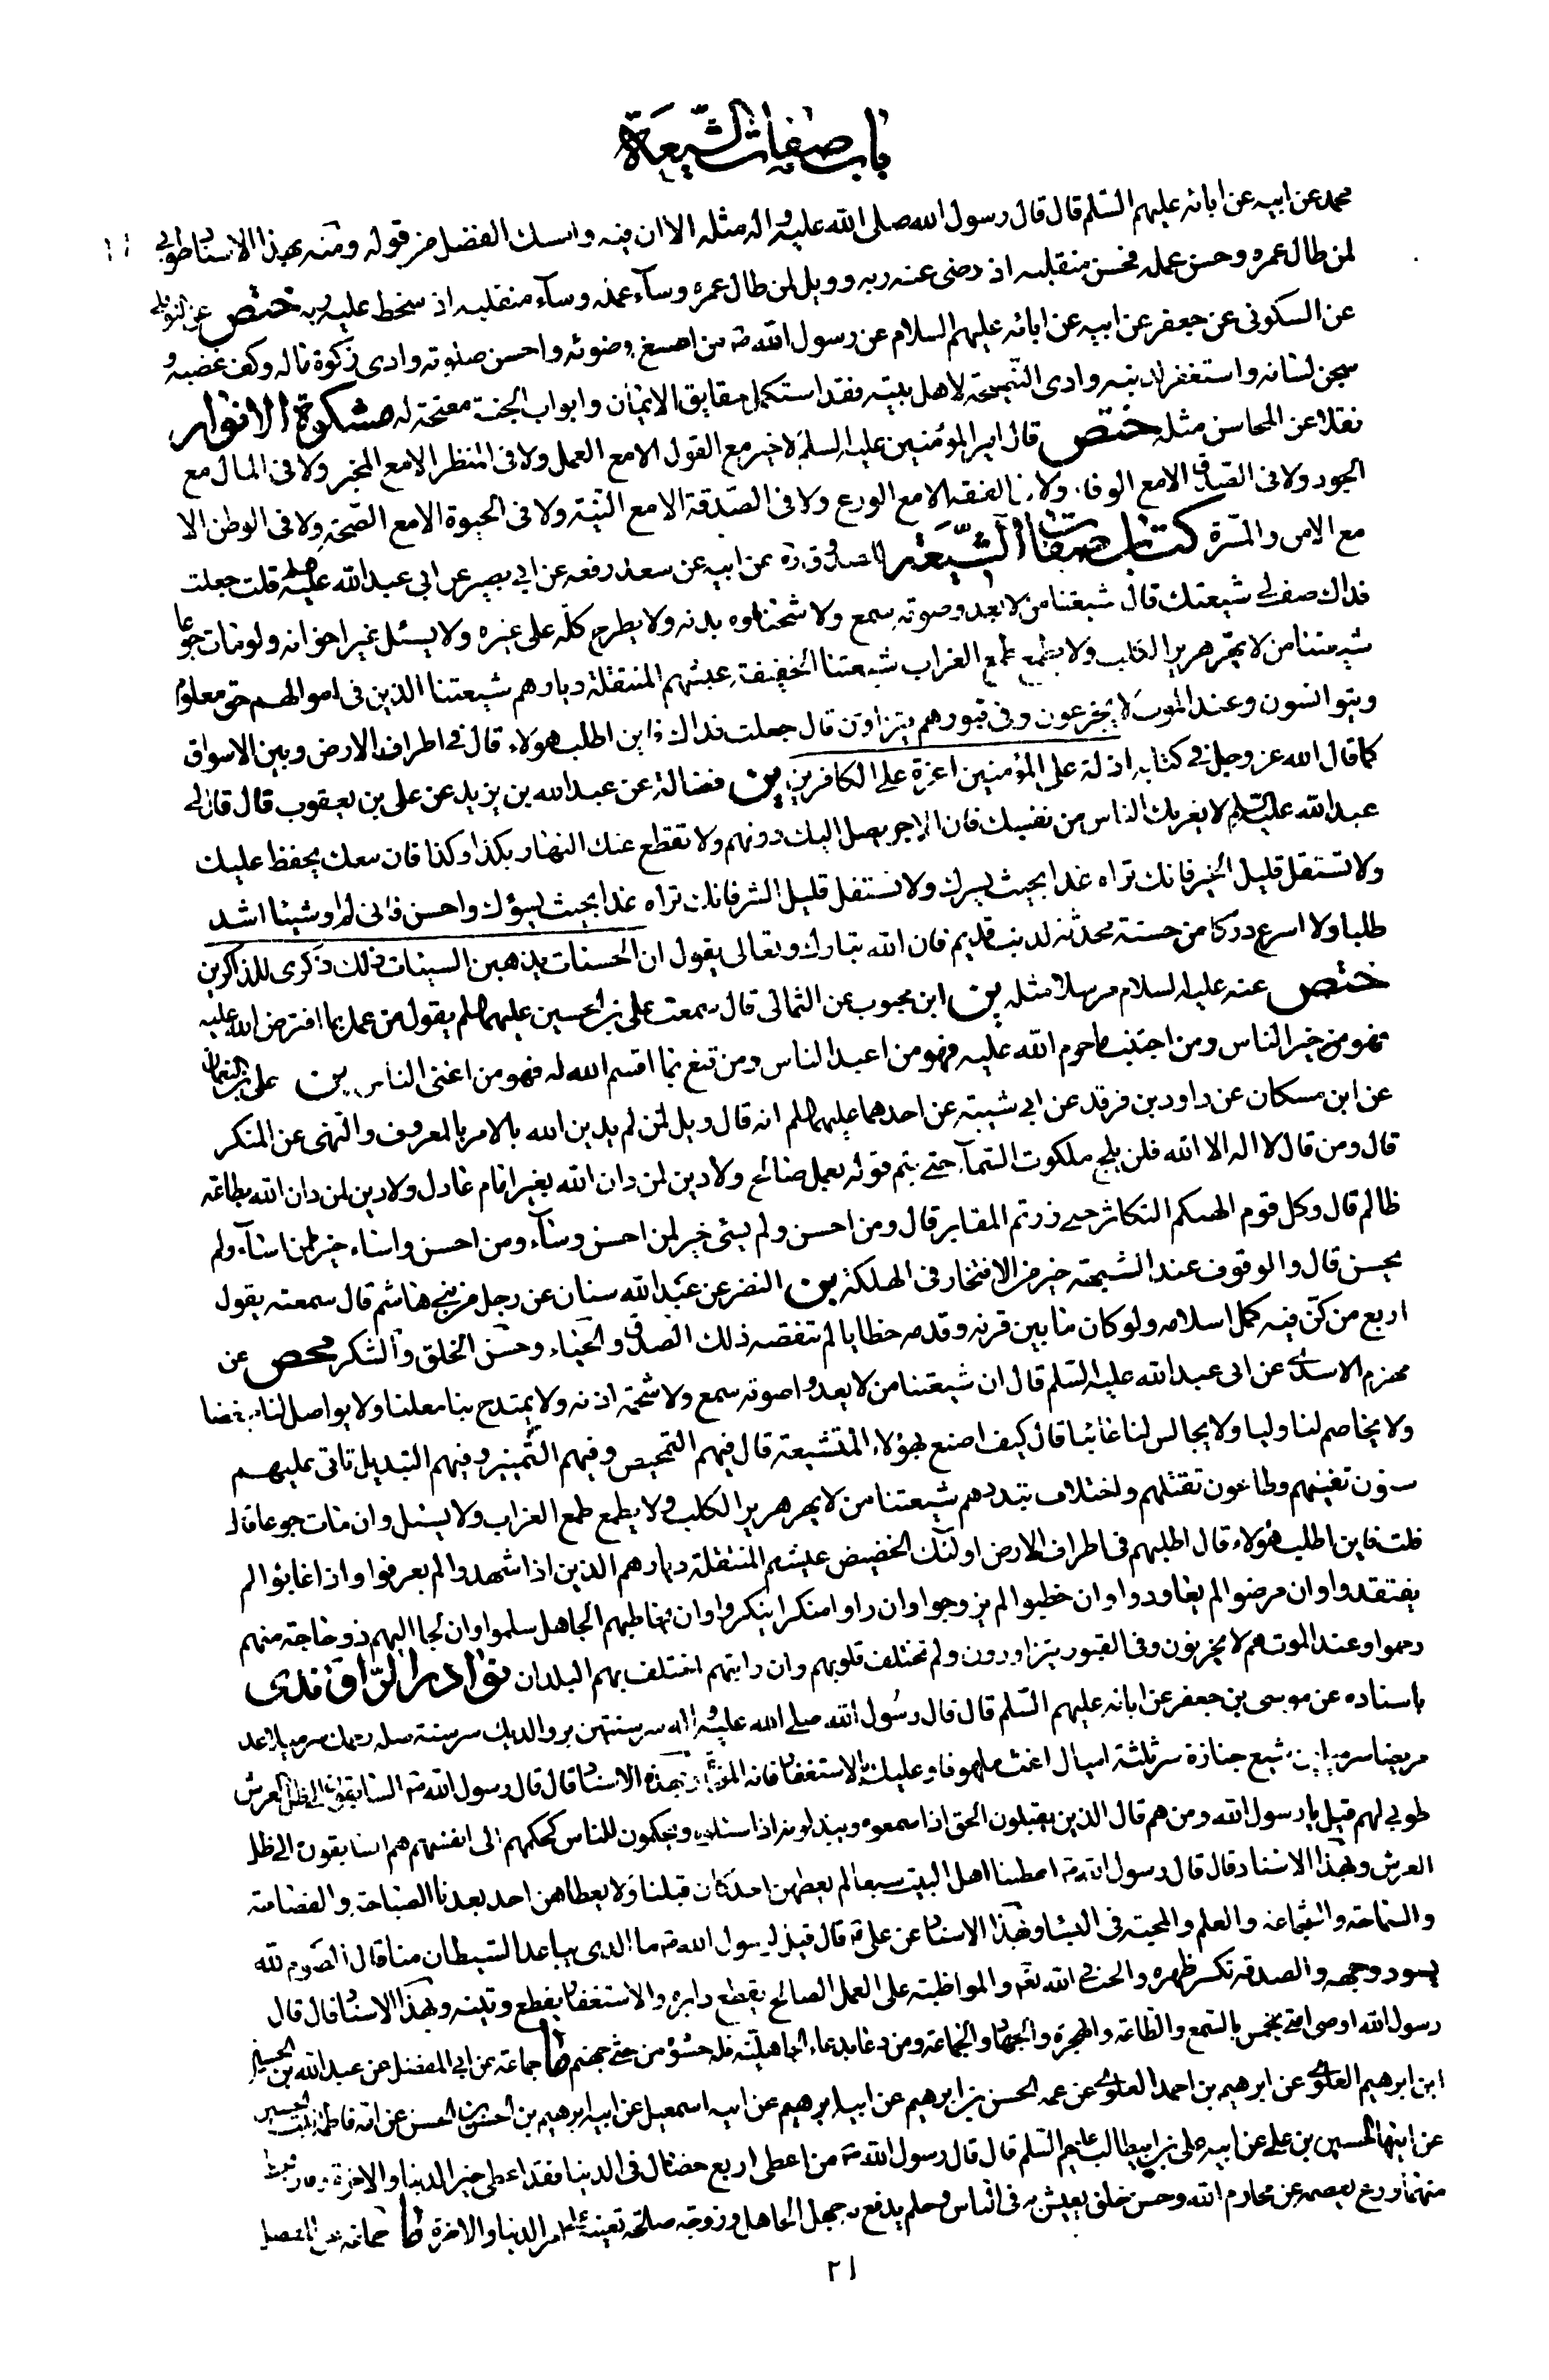 باب صفات الشيعة
محمد عن ابيه عن ابائه عليهم السلم قال قال رسول الله صلى الله عليه واله مثله الا ان فيه وامسك الفضل من قوله ومنه بهذا الاسناد طوبى
لمن طال عمره وحسن عمله فحسن منقلبه اذ رضى عنه ربه وويل لمن طال عمره وسآء عمله وسآء منقلبه اذ سخط عليه ربه ختص عن النوفلي
عن السكونى عن جعفر عن ابيه عن ابائه عليهم السلام عن رسول الله ص من اسبغ وضوئه واحسن صلوته وادى زكوة ماله وكف غضبه و
سجن لسانه واستغفر لذنبه وادى النصيحة لاهل بيته فقد استكمل حقايق الايمان وابواب الجنة مفتحة له مشكوة الانوار
نقلا عن المحاسن مثله ختص قال امير المؤمنين عليه السلم لا خير مع القول الا مع العمل ولا فى المنظر الا مع المخبر ولا فى المال مع
الجود ولا فى الصدق الا مع الوفاء ولا فى الفقه الا مع الورع ولا فى الصدقة الا مع النية ولا فى الحيوة الا مع الصحة ولا فى الوطن الا
مع الامن والمسرة كتاب صفات الشيعة للصدوق ره عن ابيه عن سعد رفعه عن ابي بصير عن ابى عبد الله عليه السلم قلت جعلت
فداك صف لي شيعتك قال شيعتنا من لا يعدو صوته سمعه ولا شحناؤه بدنه ولا يطرح كله على غيره ولا يسئل غير اخوانه ولو مات جوعا
شيعتنا من لا يهر هرير الكلب ولا يطمع طمع الغراب شيعتنا الخفيفة عيشهم المنتقلة ديارهم شيعتنا الذين فى اموالهم حق معلوم
ويتواسون وعند الموت لا يجزعون وفى قبورهم يتزاورون قال جعلت فداك فاين اطلب هولاء قال فى اطراف الارض وبين الاسواق
كما قال الله عز وجل في كتابه اذلة على المؤمنين اعزة على الكافرين ين فضالة عن عبد الله بن يزيد عن على بن يعقوب قال قال لي
عبد الله عليه السلم لا يغرنك الناس من نفسك فان الاجر يصل اليك دونهم ولا تقطع عنك النهار بكذا وكذا فان معك يحفظ عليك
ولا تستقل قليل الخير فانك تراه غدا بحيث يسرك ولا تستقل قليل الشر فانك تراه غدا بحيث يسؤك واحسن فانى لم ار شيئا اشد
طلبا ولا اسرع دركا من حسنة محدثة لذنب قديم فان الله تبارك وتعالى يقول ان الحسنات يذهبن السيئات ذلك ذكرى للذاكرين
ختص عنه عليه السلام مرسلا مثله ين ابن محبوب عن الثمالى قال سمعت على بن الحسين عليهما السلم يقول من عمل بما افترض الله عليه
فهو من خير الناس ومن اجتنب ما حرم الله عليه فهو من اعبد الناس ومن قنع بما اقسم الله له فهو من اغنى الناس ين على بن النعمان
عن ابن مسكان عن داود بن فرقد عن ابي شيبة عن احدهما عليهما السلم انه قال ويل لمن لم يدين الله بالامر بالمعروف والنهى عن المنكر
قال ومن قال لا اله الا الله فلن يلج ملكوت السمآء حتى يتم قوله بعمل صالح ولا دين لمن دان الله بغير امام عادل ولا دين لمن دان الله بطاعة
ظالم قال وكل قوم الهيكم التكاثر حتى زرتم المقابر قال ومن احسن ولم يسئ خير لمن احسن وسآء ومن احسن واساء خير لمن اسآء ولم
يحسن قال والوقوف عند الشبهة خير من الاقتحار فى الهلكة ين النضر عن عبد الله سنان عن رجل من بني هاشم قال سمعته يقول
اربع من كن فيه كمل اسلامه ولو كان ما بين قرنه وقدمه خطايا لم تنقصه ذلك الصدق والحياء وحسن الخلق والشكر محص عن
مهزم الاسدي عن ابى عبد الله عليه السلم قال ان شيعتنا من لا يعدو صوته سمعه ولا شحمة اذنه ولا يمتدح بنا معلنا ولا يواصل لنا مبغضا
ولا يخاصم لنا وليا ولا يجالس لنا عائبا قال كيف اصنع بهؤلاء المتشيعة قال فيهم التمحيص وفيهم التمييز وفيهم التبديل تاتى عليهم
سنون تفنيهم وطاعون تقتلهم واختلاف تبددهم شيعتنا من لا يهر هرير الكلب ولا يطمع طمع الغراب ولا يسئل وان مات جوعا قال
قلت فاين اطلب هؤلاء قال اطلبهم فى اطراف الارض اولئك الخفيض عيشهم المنتقلة ديارهم الذين اذا شهدوا لم يعرفوا واذا غابوا لم
يفتقدوا وان مرضوا لم يعاودوا وان خطبوا لم يزوجوا وان راوا منكرا ينكروا وان يخاطبهم الجاهل سلموا وان لجا اليهم ذو حاجة منهم
رحموا وعند الموت هم لا يحزنون وفى القبور يتزاورون ولم تختلف قلوبهم وان رايتهم اختلف بهم البلدان نوادر الراوندى
باسناده عن موسى بن جعفر عن ابائه عليهم السلم قال قال رسول الله صلى الله عليه واله سر سنتين بر والديك سر سنة صل رحمك سر ميلا عد
مريضا سر ميلين شيع جنازة سر ثلثة اميال اغث ملهوفا وعليك بالاستغفار فانه وبهذه الاسناد قال قال رسول الله ص السابقون الى ظل العرش
طوبى لهم قيل يا رسول الله ومن هم قال الذين يقبلون الحق اذا سمعوه ويبذلونه اذا سئلوه ويحكمون للناس كحكمهم الى انفسهم هم السابقون الى ظل
العرش وبهذا الاسناد قال قال رسول الله ص اعطينا اهل البيت سبعا لم يعطهن احد كان قبلنا ولا يعطاهن احد بعدنا الصباحة والفصاحة
والسماحة والشجاعة والعلم والمحبة فى النساء وبهذا الاسناد عن على ع قال قيل لرسول الله ص ما الذى يباعد الشيطان منا قال الصوم لله
يسود وجهه والصدقة تكسر ظهره والحب في الله تعم والمواظبة على العمل الصالح يقطع دابره والاستغفار يقطع وتينه وبهذا الاسناد قال قال
رسول الله اوصى امتي بخمس بالسمع والطاعة والهجرة والجهاد والجماعة ومن دعا بدعاء الجاهلية فله حشوة من حثى جهنم ما جماعة عن ابي المفضل عن عبد الله بن الحسين
ابن ابرهيم العلوي عن ابرهيم بن احمد العلوي عن عمه الحسن بن ابرهيم عن ابيه ابرهيم عن ابيه اسمعيل عن ابيه ابرهيم بن الحسن بن الحسن عن امه فاطمة بنت الحسين
عن ابيها الحسين بن على عن ابيه على بن ابيطالب عليهم السلم قال قال رسول الله ص من اعطى اربع خصال فى الدنيا فقد اعطى خير الدنيا والاخرة وفاز بحظه
منهما ورع يعصمه عن محارم الله وحسن خلق يعيش به فى الناس وحلم يدفع به جهل الجاهل وزوجة صالحة تعينه على امر الدنيا والاخرة ما جماعة عن ابى المفضل
٢١